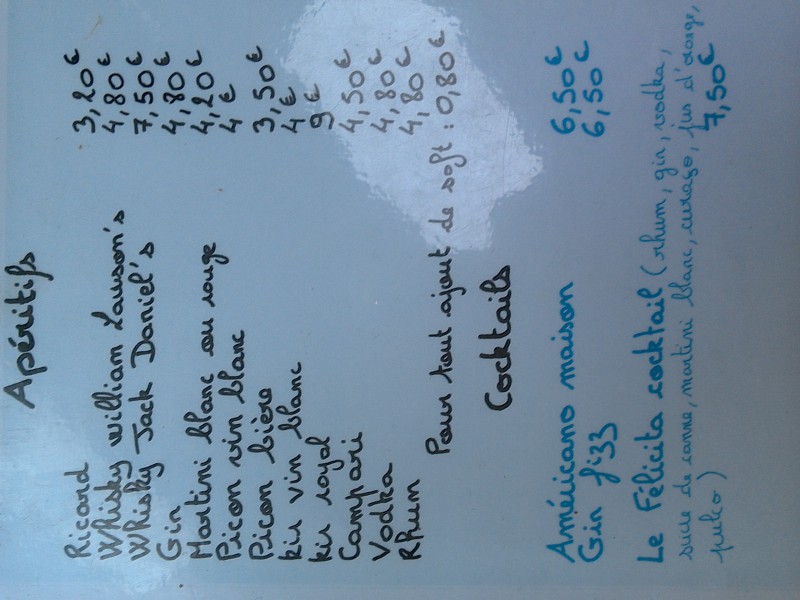 Apéritifs
Ricard 3,20€
Whisky William Lawson's 4,80€
Whisky Jack Daniel's 7,50€
Gin 4,80€
Martini blanc ou rouge 4,20€
Picon vin blanc 4€
Picon bière 3,50€
kir vin blanc 4€
kir royal 9€
Campari 4,50€
Vodka 4,80€
Rhum 4,80€
Pour tout ajout de soft : 0,80€
Cocktails
Américano maison 6,50€
Gin f'33 6,50€
Le Félicita cocktail (rhum, gin, vodka,
sucre de canne, martini blanc, curaço, jus d'orange,
pulco) 7,50€